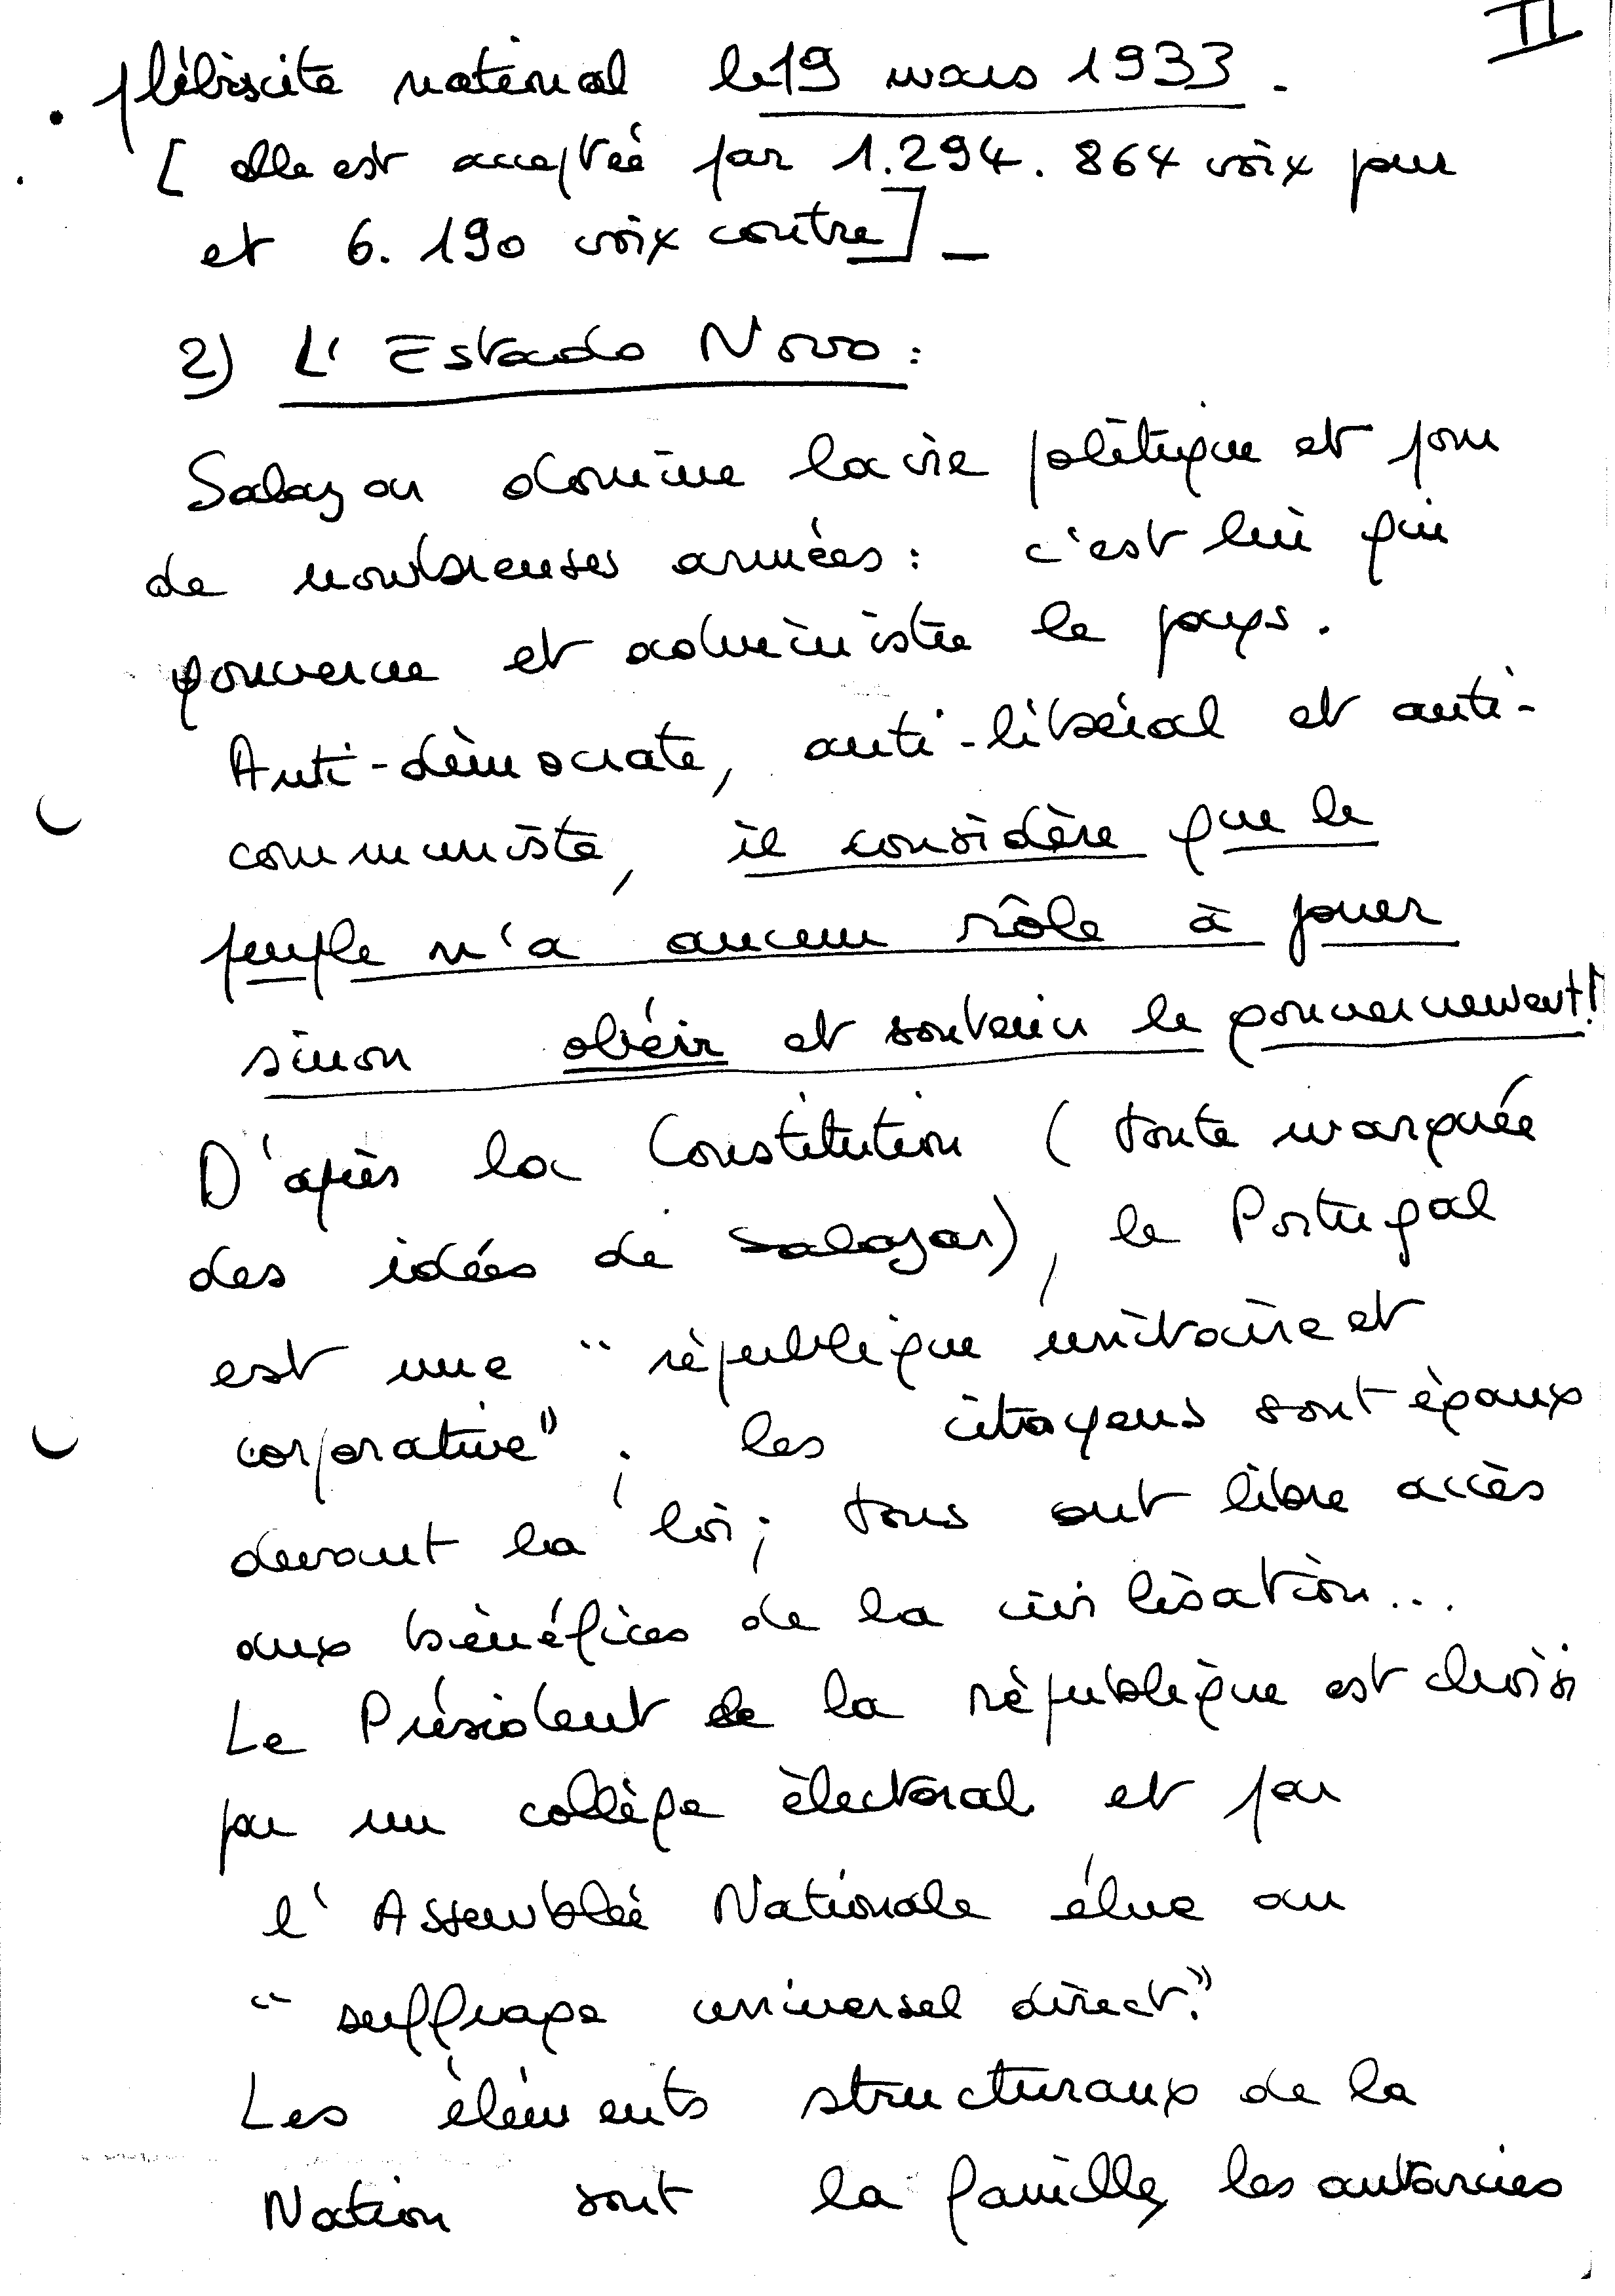 II
plébiscite national le 19 mars 1933.
[ elle est acceptée par 1.294.864 voix pour
et 6.190 voix contre] -
2) L'Estado Novo :
Salazar domine la vie politique et pour
de nombreuses années : c'est lui qui
gouverne et administre le pays.
Anti-démocrate, anti-libéral et anti-
communiste, il considère que le
peuple n'a aucun rôle à jouer
sinon obéir et soutenir le gouvernement!
D'après la Constitution (toute marquée
des idées de Salazar), le Portugal
est une "république unitaire et
corporative"; les citoyens sont égaux
devant la loi; tous ont libre accès
aux bénéfices de la civilisation...
Le Président de la république est choisi
par un collège électoral et par
l'Assemblée Nationale élue au
"suffrage universel direct."
Les éléments structuraux de la
Nation sont la famille, les autarcies